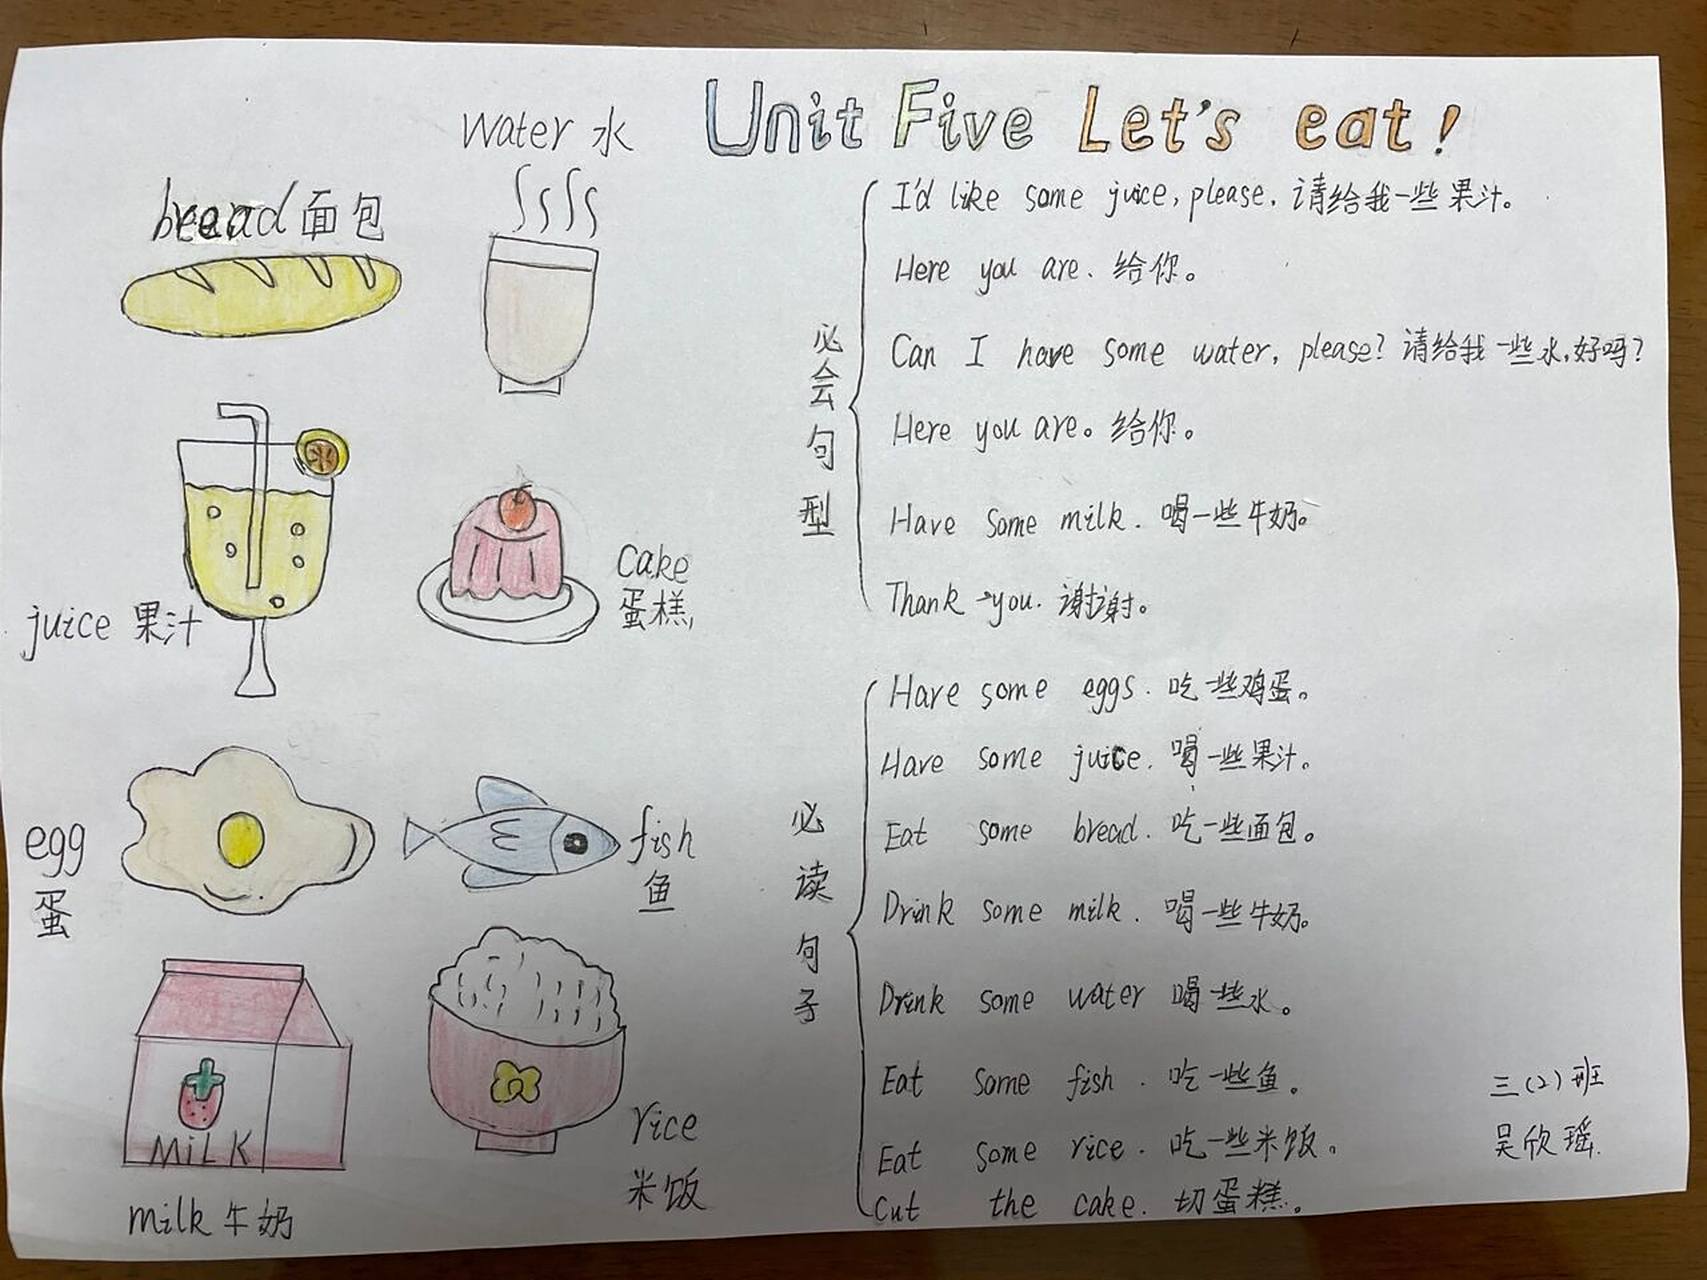 Unit Five Let's eat!
water 水
bread 面包
juice 果汁
cake
蛋糕
egg
蛋
fish
鱼
MiLK
milk 牛奶
rice
米饭
必会句型
I'd like some juice, please. 请给我一些果汁。
Here you are. 给你。
Can I have some water, please? 请给我一些水,好吗?
Here you are。给你。
Have some milk. 喝一些牛奶。
Thank you. 谢谢。
必读句子
Have some eggs. 吃一些鸡蛋。
Have some juice. 喝一些果汁。
Eat some bread. 吃一些面包。
Drink some milk. 喝一些牛奶。
Drink some water 喝一些水。
Eat some fish. 吃一些鱼。
Eat some rice. 吃一些米饭。
Cut the cake. 切蛋糕。
三(2)班
吴欣瑶.